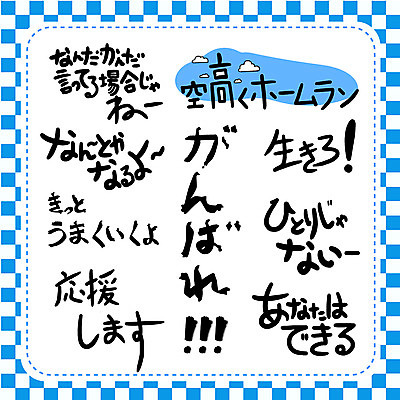 なんだかんだ
言ってる場合じゃ
ねー
空高くホームラン
なんとか
なるよ〜
がんばれ!!!
生きろ!
きっと
うまくいくよ
ひとりじゃ
ないー
応援
します
あなたは
できる